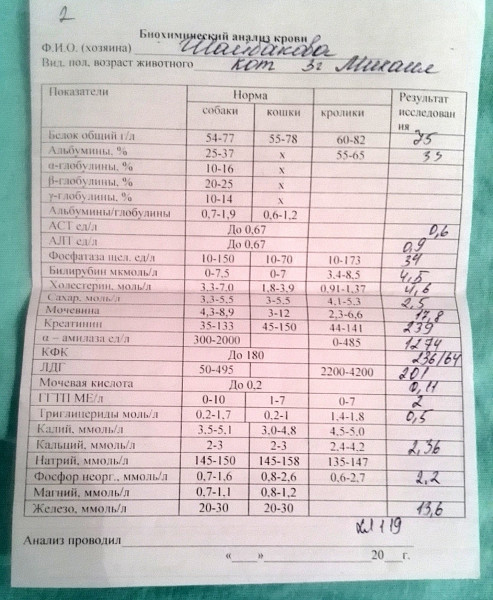 2
Биохимический анализ крови
Ф.И.О. (хозяина) Шалбакова
Вид, пол, возраст животного кот 3г Михаил
Показатели Норма Результат исследования
собаки кошки кролики
Белок общий г/л 54-77 55-78 60-82 75
Альбумины, % 25-37 x 55-65 33
α-глобулины, % 10-16 x
β-глобулины, % 20-25 x
γ-глобулины, % 10-14 x
Альбумины/глобулины 0,7-1,9 0,6-1,2
АСТ ед/л До 0,67 0,6
АЛТ ед/л До 0,67 0,9
Фосфатаза щел. ед/л 10-150 10-70 10-173 34
Билирубин мкмоль/л 0-7,5 0-7 3.4-8,5 4,5
Холестерин, моль/л 3,3-7,0 1,8-3,9 0,91-1,37 4,6
Сахар, моль/л 3,3-5,5 3-5,5 4,1-5,3 2,5
Мочевина 4,3-8,9 3-12 2,3-6,6 17,8
Креатинин 35-133 45-150 44-141 239
α – амилаза ед/л 300-2000 0-485 1274
КФК До 180 236/64
ЛДГ 50-495 2200-4200 201
Мочевая кислота До 0,2 0,11
ГГТП МЕ/л 0-10 1-7 0-7 2
Триглицериды моль/л 0,2-1,7 0,2-1 1,4-1,8 0,5
Калий, ммоль/л 3,5-5,1 3,0-4,8 4,5-5,0
Кальций, ммоль/л 2-3 2-3 2,4-4,2 2,36
Натрий, ммоль/л 145-150 145-158 135-147
Фосфор неорг., ммоль/л 0,7-1,6 0,8-2,6 0,6-2,7 2,2
Магний, ммоль/л 0,7-1,1 0,8-1,2
Железо, ммоль/л 20-30 20-30 13,6
119
Анализ проводил
«___»__________20___г.